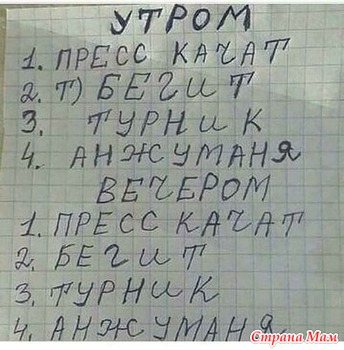 УТРОМ
1. ПРЕСС КАЧАТ
2. Т) БЕГИТ
3. ТУРНИК
4. АНЖУМАНЯ
ВЕЧЕРОМ
1. ПРЕСС КАЧАТ
2. БЕГИТ
3. ТУРНИК
4. АНЖУМАНЯ
Страна Мам